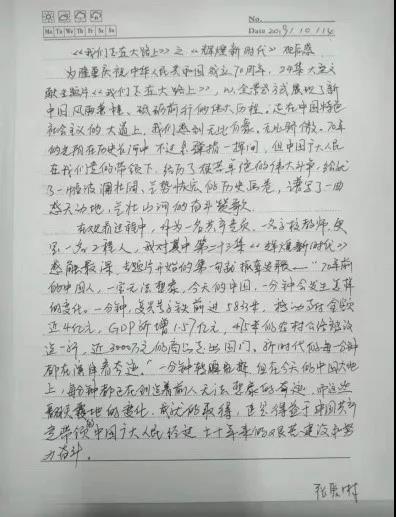 No.
Mo Tu We Th Fr Sa Su Date 2019/10/14
《我们走在大路上》之《辉煌新时代》观后感
为隆重庆祝中华人民共和国成立70周年，24集大型文
献专题片《我们走在大路上》，以全景式展现了新
中国风雨兼程、砥砺前行的伟大历程。走在中国特色
社会主义的大道上，我们感到无比自豪、无比骄傲。70年
的光阴在历史长河中不过是弹指一挥间，但中国广大人民
在我们党的带领下，经历了艰苦卓绝的伟大斗争，绘就
了一幅波澜壮阔、气势恢宏的历史画卷，谱写了一曲
感天动地、气壮山河的奋斗赞歌。
在观看过程中，作为一名共产党员、一名高校教师、更
是一名工程人，我对其中第二十三集《辉煌新时代》
感触最深，专题片开始的第一句就振聋发聩——“70年前
的中国人，一定无法想象，今天的中国，一分钟会发生怎样
的变化。一分钟，复兴号高铁前进5833米，移动支付金额
近4亿元，GDP新增1.57亿元，415米的农村公路被改
造一新，近3000万元的商品走出国门。新时代的每一分钟
都在演绎着奇迹。”一分钟转瞬即逝，但在今天的中国大地
上，每分钟都正在创造着前人无法想象的奇迹，而这些
翻天覆地的变化、成就的取得，正是得益于中国共产
党带领的中国广大人民经过七十年来的艰苦建设和努
力奋斗。